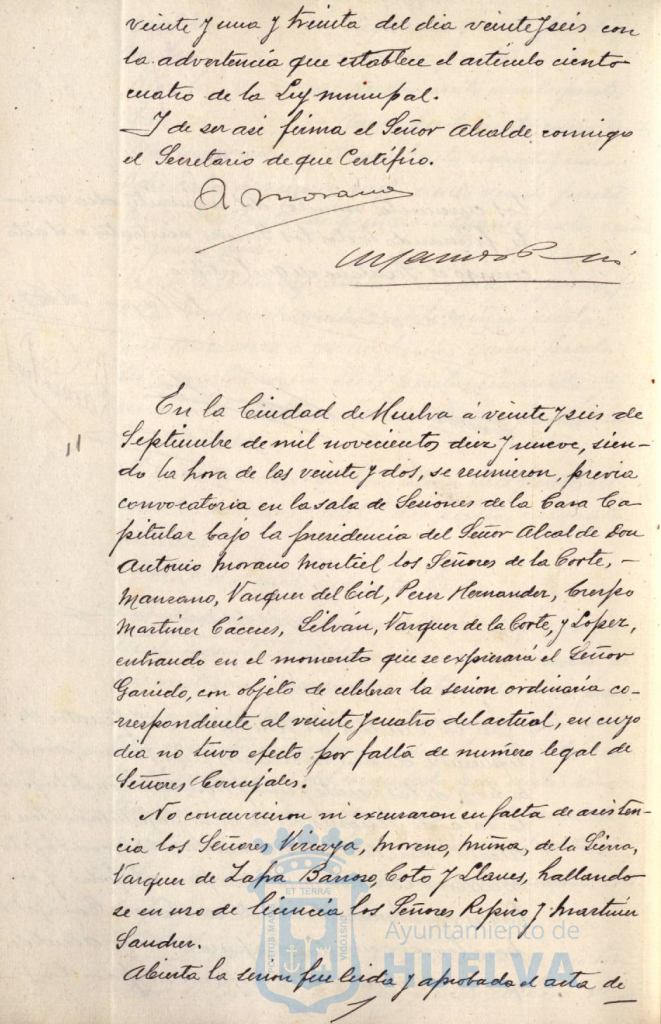 veinte y una y treinta del dia veinte y seis con
la advertencia que establece el artículo ciento
cuatro de la Ley municipal.
Y de ser asi firma el Señor Alcalde conmigo
el Secretario de que Certifico.
A Morano
En la Ciudad de Huelva á veinte y seis de
Septiembre de mil novecientos diez y nueve, sien-
do la hora de las veinte y dos, se reunieron, previa
convocatoria en la sala de Sesiones de la Casa Ca-
pitular bajo la presidencia del Señor Alcalde Don
Antonio Morano Montiel los Señores de la Corte, -
Manzano, Vazquez del Cid, Perez Hernandez, Crespo
Martinez Cáceres, Silván, Vazquez de la Corte, y Lopez,
entrando en el momento que se expresará el Señor
Garrido, con objeto de celebrar la sesion ordinaria co-
rrespondiente al veinte y cuatro del actual, en cuyo
dia no tuvo efecto por falta de número legal de
Señores Concejales.
No concurrieron ni excusaron su falta de asisten-
cia los Señores Vizcaya, Moreno, Muñoz, de la Sierra,
Vazquez de Zafra Barroso, Coto y Llanes, hallando
se en uso de licencia los Señores Repiso y Martinez
Sanchez.
Abierta la sesion fue leida y aprobada el acta de
ET TERRÆ
Ayuntamiento de
HUELVA